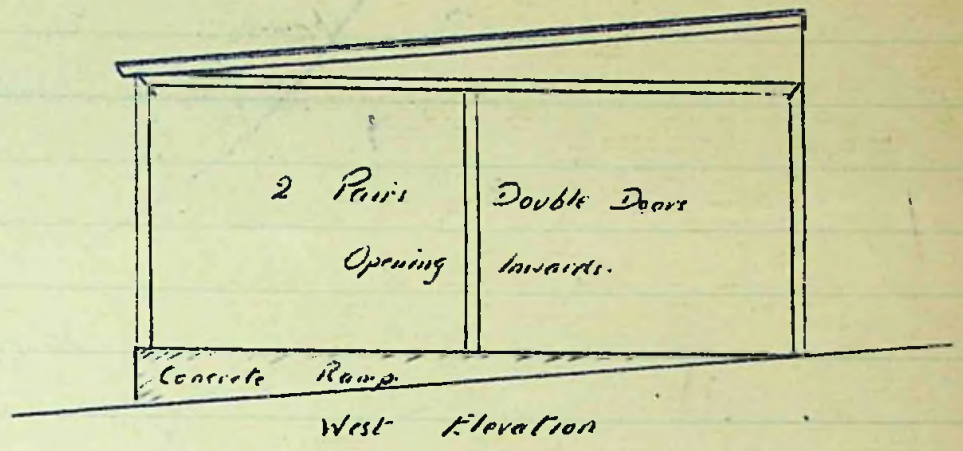 2 Pairs Double Doors
Opening Inwards.
Concrete Ramp.
West Elevation